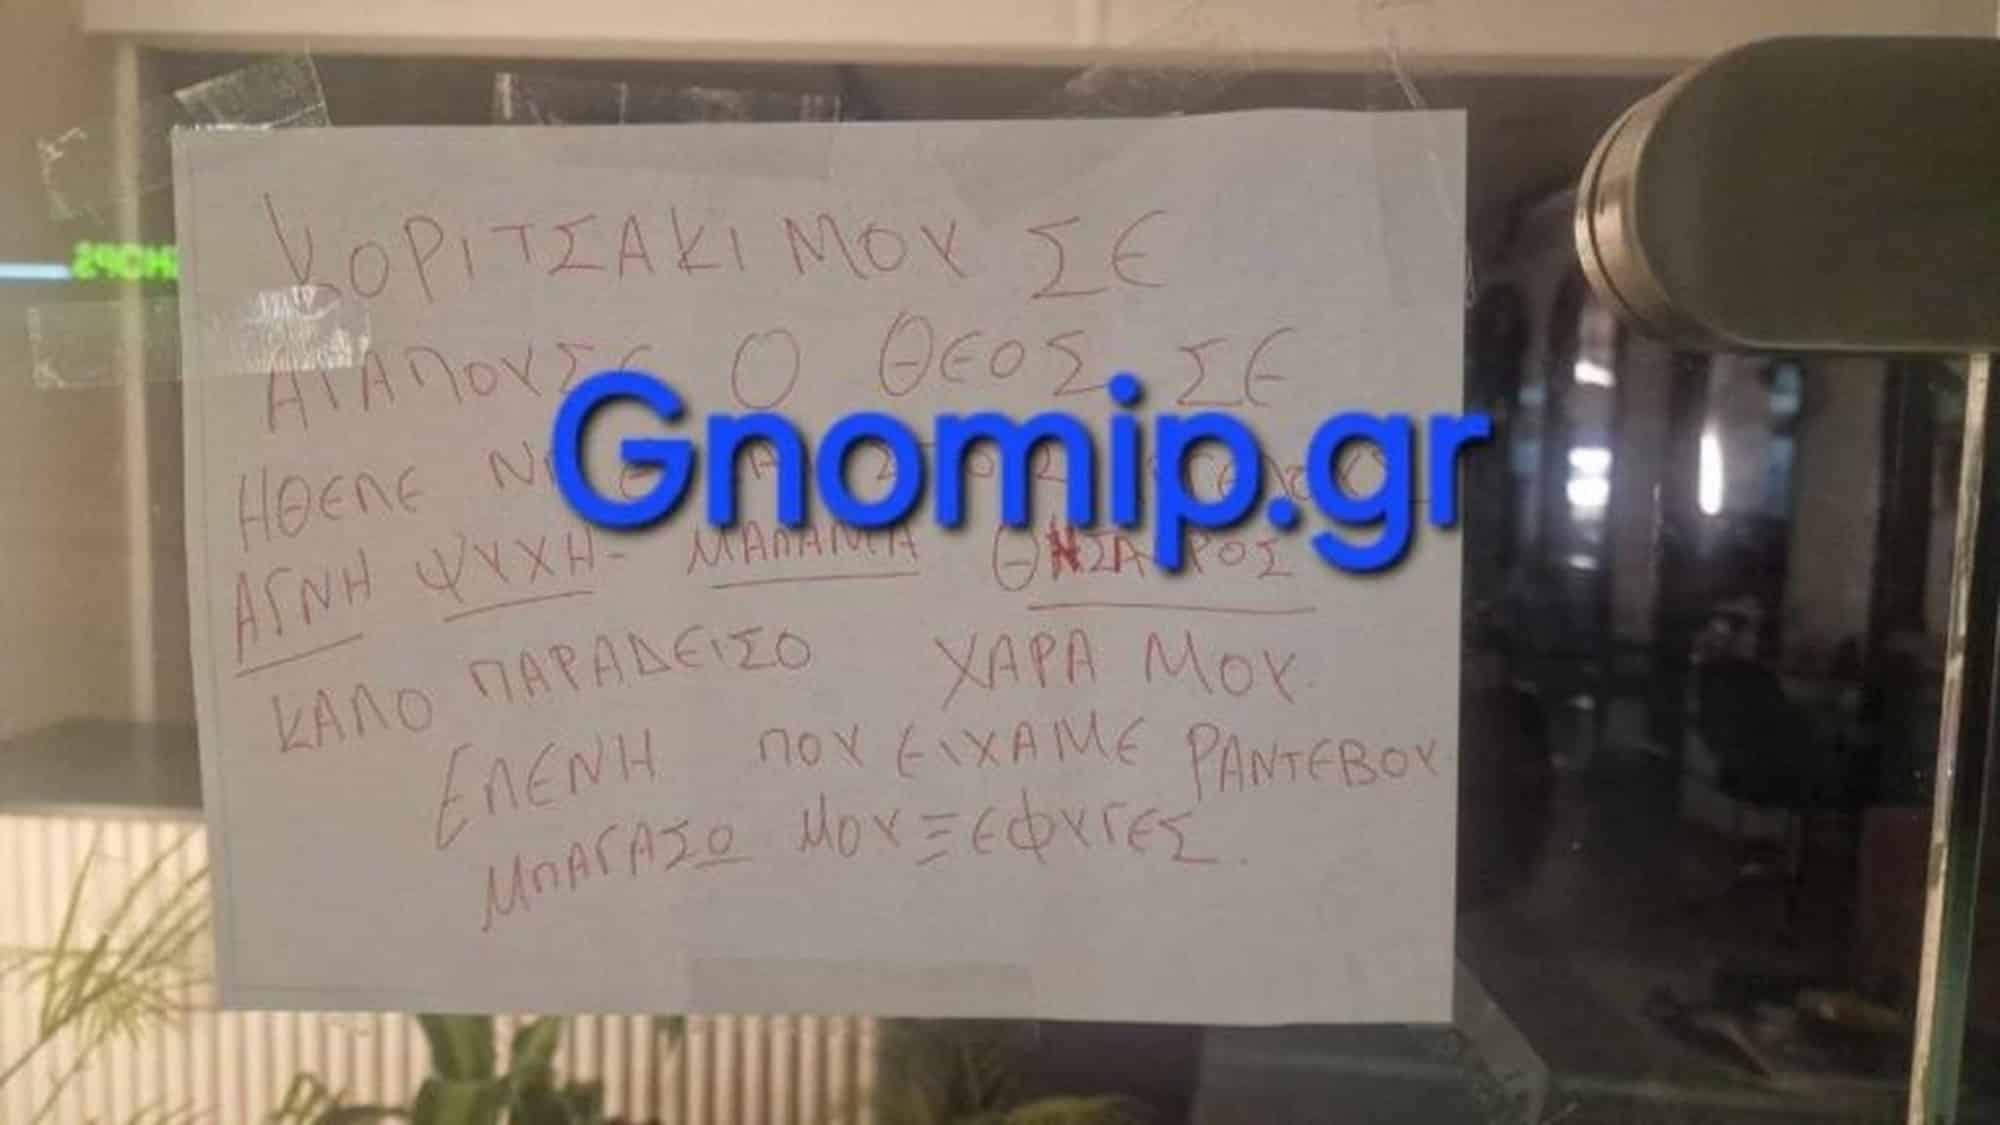 ΚΟΡΙΤΣΑΚΙ ΜΟΥ ΣΕ
ΑΓΑΠΟΥΣΕ Ο ΘΕΟΣ ΣΕ
ΗΘΕΛΕ
Gnomip.gr
ΑΓΝΗ ΨΥΧΗ - ΜΑΛΑΜΑ ΘΗΣΑΥΡΟΣ
ΚΑΛΟ ΠΑΡΑΔΕΙΣΟ ΧΑΡΑ ΜΟΥ.
ΕΛΕΝΗ ΠΟΥ ΕΙΧΑΜΕ ΡΑΝΤΕΒΟΥ
ΜΠΑΓΑΣΩ ΜΟΥ ΞΕΦΥΓΕΣ.